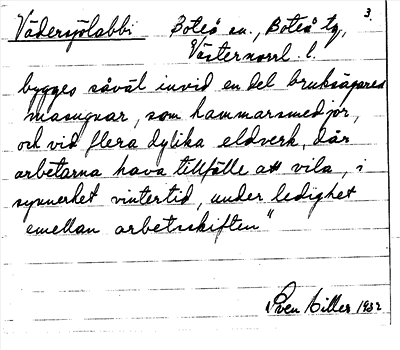 3.
Vädersjölabbi Boteå sn., Boteå tg,
Västernorrl. l.
bygges såväl invid en del bruksägares
masugnar, som hammarsmedjor,
och vid flera dylika eldverk, där
arbetarna hava tillfälle att vila, i
synnerhet vintertid, under ledighet
emellan arbetsskiften"
Sven Hiller 1932